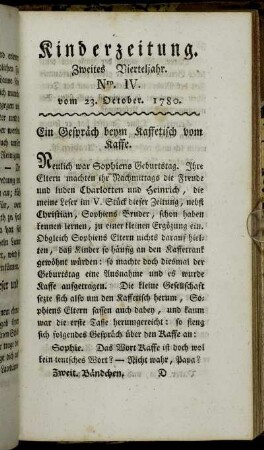 Kinderzeitung.
Zweites Vierteljahr.
Nro. IV.
vom 23. October. 1780.
Ein Gespräch beym Kaffetisch vom
Kaffe.
Neulich war Sophiens Geburtstag. Ihre
Eltern machten ihr Nachmittags die Freude
und luden Charlotten und Heinrich, die
meine Leser im V. Stück dieser Zeitung, nebst
Christian, Sophiens Bruder, schon haben
kennen lernen, zu einer kleinen Ergözung ein.
Obgleich Sophiens Eltern nichts darauf hiel-
ten, daß Kinder so häufig an den Kaffetrank
gewöhnt würden: so machte doch diesmal der
Geburtstag eine Ausnahme und es wurde
Kaffe aufgetragen. Die kleine Gesellschaft
sezte sich also um den Kaffetisch herum, So-
phiens Eltern sassen auch dabey, und kaum
war die erste Tasse herumgereicht: so fieng
sich folgendes Gespräch über den Kaffe an:
Sophie. Das Wort Kaffe ist doch wol
kein teutsches Wort? — Nicht wahr, Papa?
Zweit. Bändchen. D